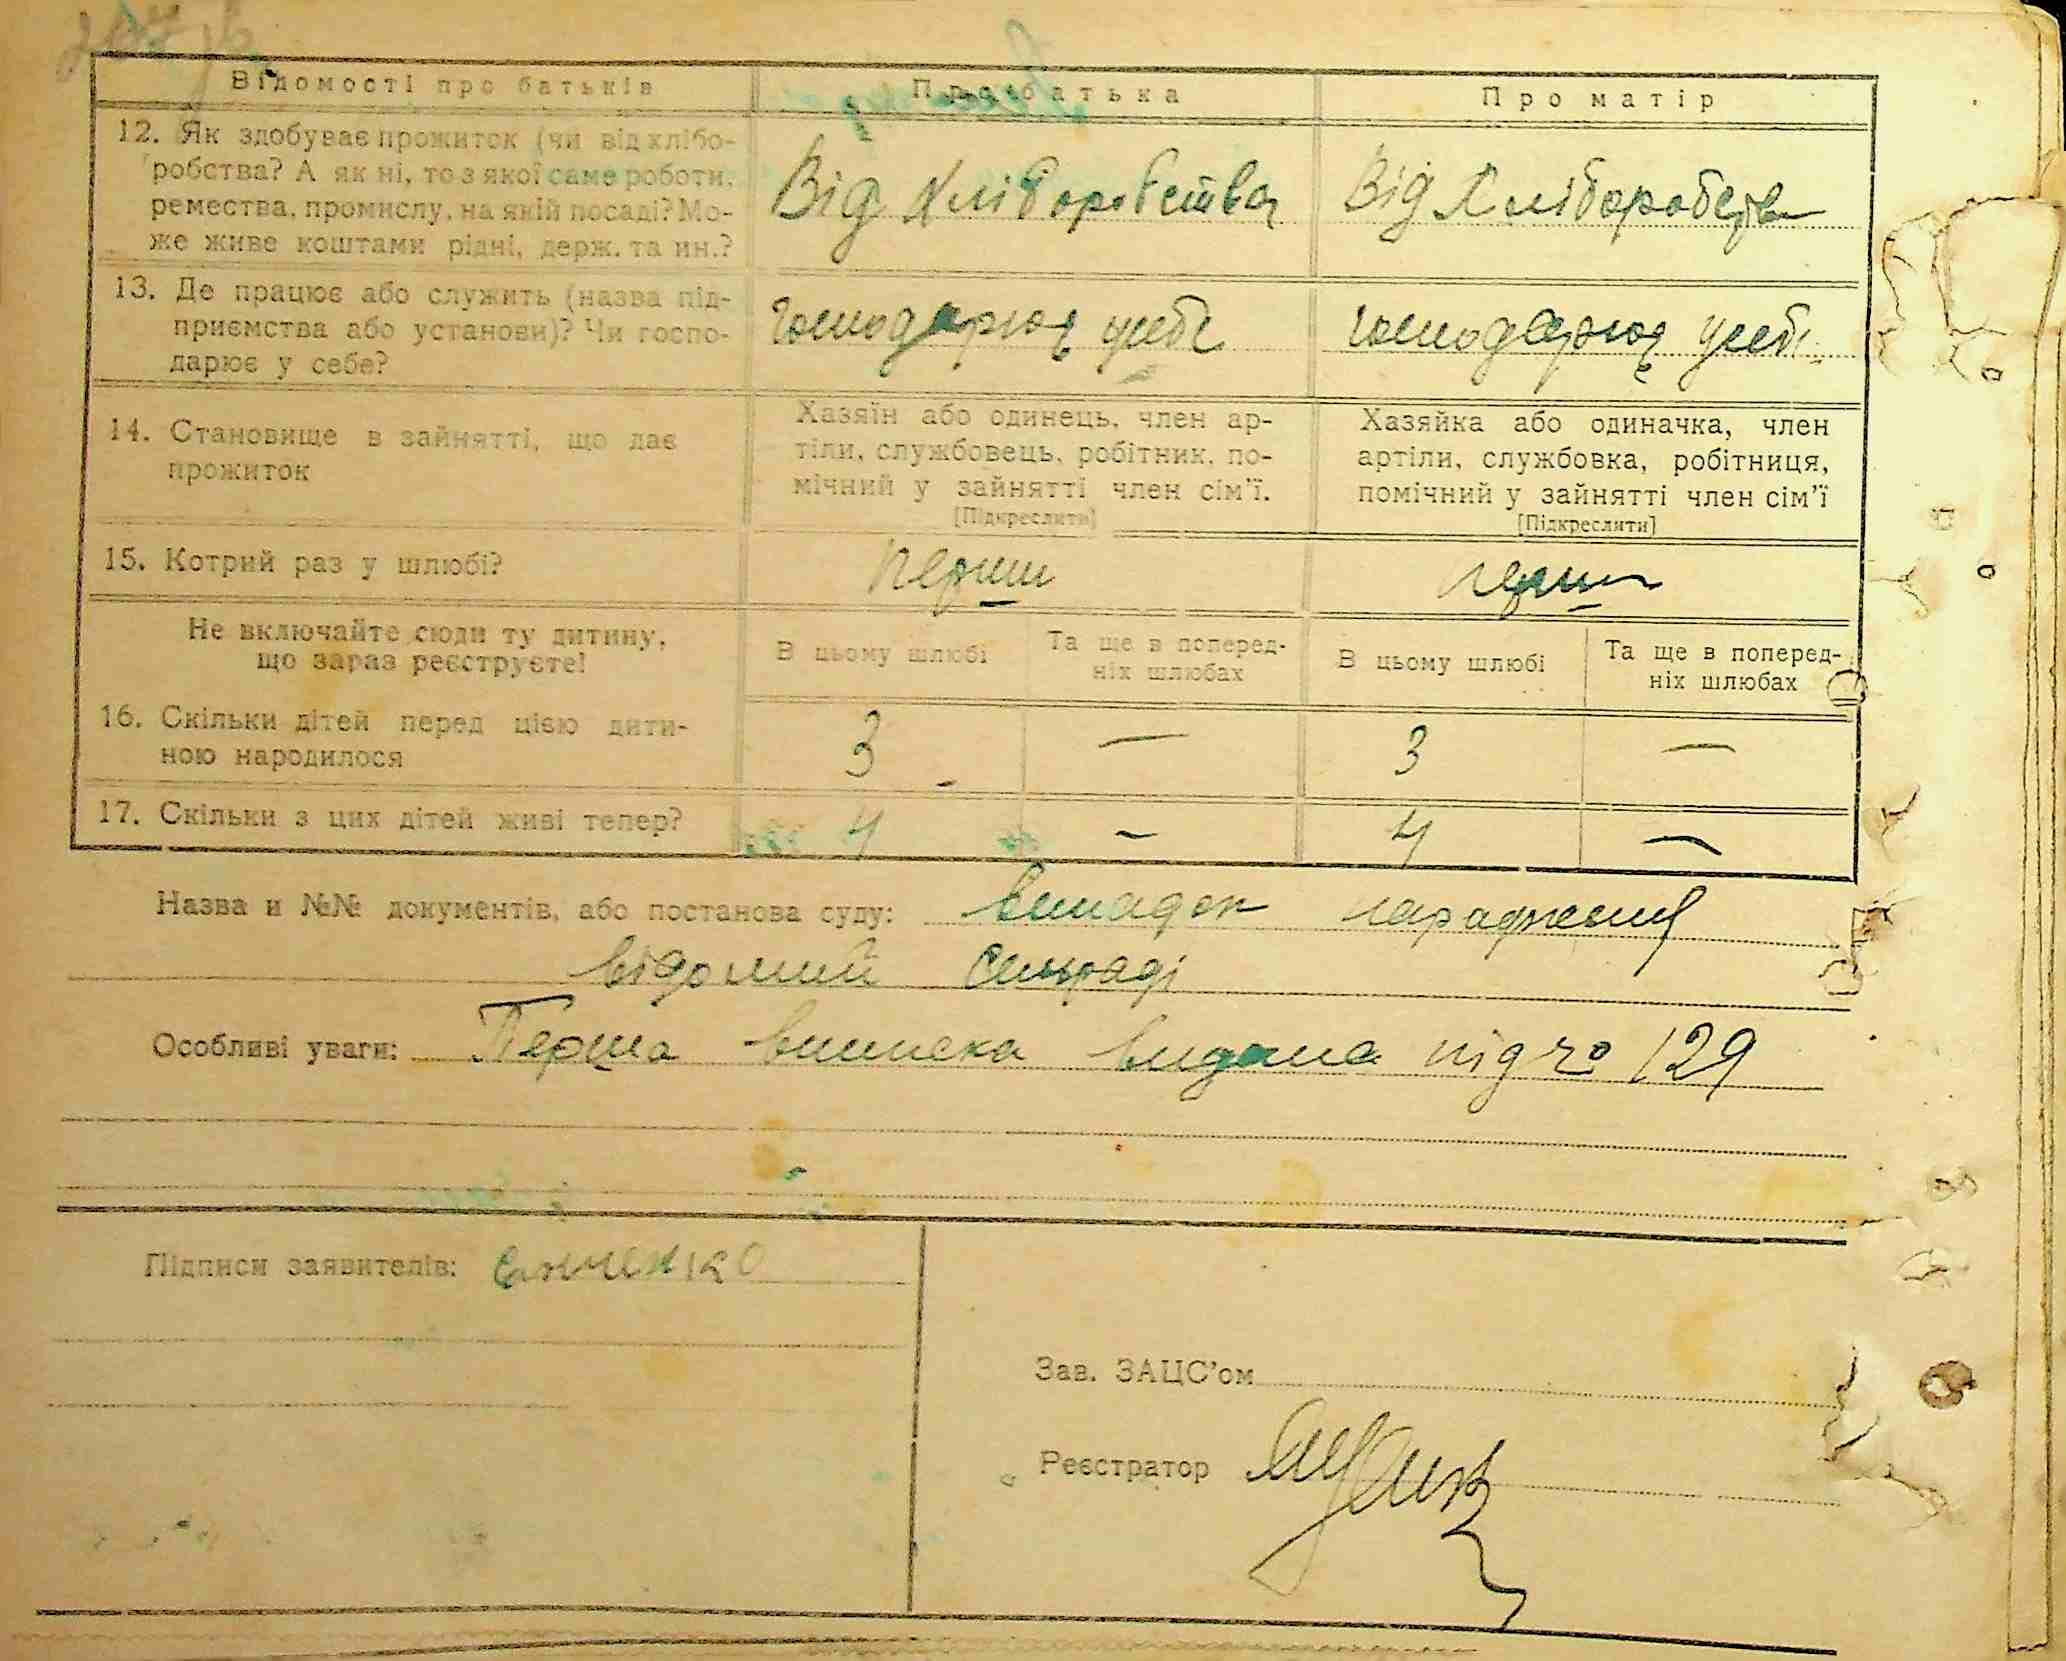 Відомості про батьків Про батька Про матір
12. Як здобуває прожиток (чи від хлібо-
робства? А як ні, то з якої саме роботи,
ремества, промислу, на якій посаді? Мо-
же живе коштами рідні, держ. та ин.?
Від Хліборобства Від Хліборобства
13. Де працює або служить (назва під-
приємства або установи)? Чи госпо-
дарює у себе?
Господарює у себе Господарює у себе
14. Становище в зайнятті, що дає
прожиток
Хазяїн або одинець, член ар-
тіли, службовець, робітник, по-
мічний у зайнятті член сім'ї.
[Підкреслити]
Хазяйка або одиначка, член
артіли, службовка, робітниця,
помічний у зайнятті член сім'ї
[Підкреслити]
15. Котрий раз у шлюбі? перший перший
Не включайте сюди ту дитину,
що зараз реєструєте!
В цьому шлюбі Та ще в поперед-
ніх шлюбах
В цьому шлюбі Та ще в поперед-
ніх шлюбах
16. Скільки дітей перед цією дити-
ною народилося
3 — 3 —
17. Скільки з цих дітей живі тепер? 4 — 4 —
Назва и №№ документів, або постанова суду: випадок народження
відомий сільраді
Особливі уваги: Перша виписка видана під № 129
Підписи заявителів:
Зав. ЗАЦС'ом
Реєстратор